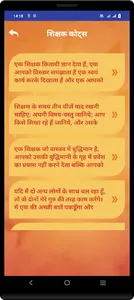 14:18
शिक्षक कोट्स
एक शिक्षक किताबी ज्ञान देता हैं, एक
आपको विस्तार समझाता हैं एक स्वयं
कार्य करके दिखाता हैं और एक आपको
शिक्षक के समय तीन चीजें याद रखनी
चाहिए: अपनी विषय-वस्तु जानिये; आप
किसे शिखा रहे हैं जानिये, और उसके
एक शिक्षक जो वास्तव में बुद्धिमान है,
आपको उसकी बुद्धिमानी के गृह में प्रवेश
का प्रयास नहीं करने देता बल्कि आपको
यदि मैं दो अन्य लोगों के साथ चल रहा हूँ,
तो वो दोनों मेरे गुरु की तरह काम करेंगे।
में एक की अच्छी बातें पकडूँगा और